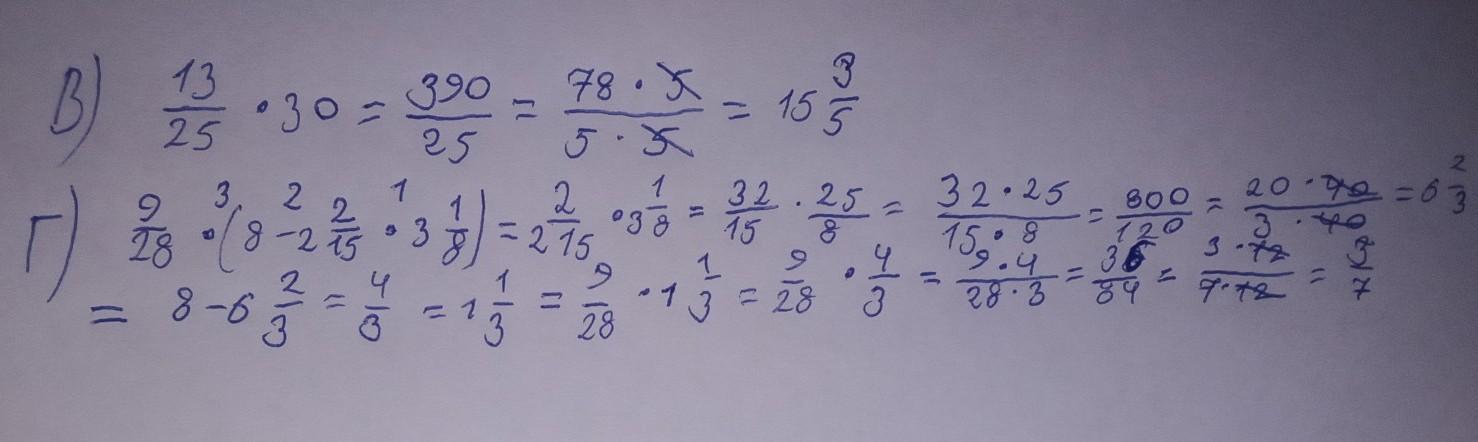 В) 13/25 · 30 = 390/25 = 78 · 5/5 · 5 = 15 3/5
Г) 9/28 ·³ (8 -² 2 2/15 ·¹ 3 1/8) = 2 2/15 · 3 1/8 = 32/15 · 25/8 = 32 · 25/15 · 8 = 800/120 = 20 · 40/3 · 40 = 6 2/3
= 8 - 6 2/3 = 4/3 = 1 1/3 = 9/28 · 1 1/3 = 9/28 · 4/3 = 9 · 4/28 · 3 = 36/84 = 3 · 12/7 · 12 = 3/7